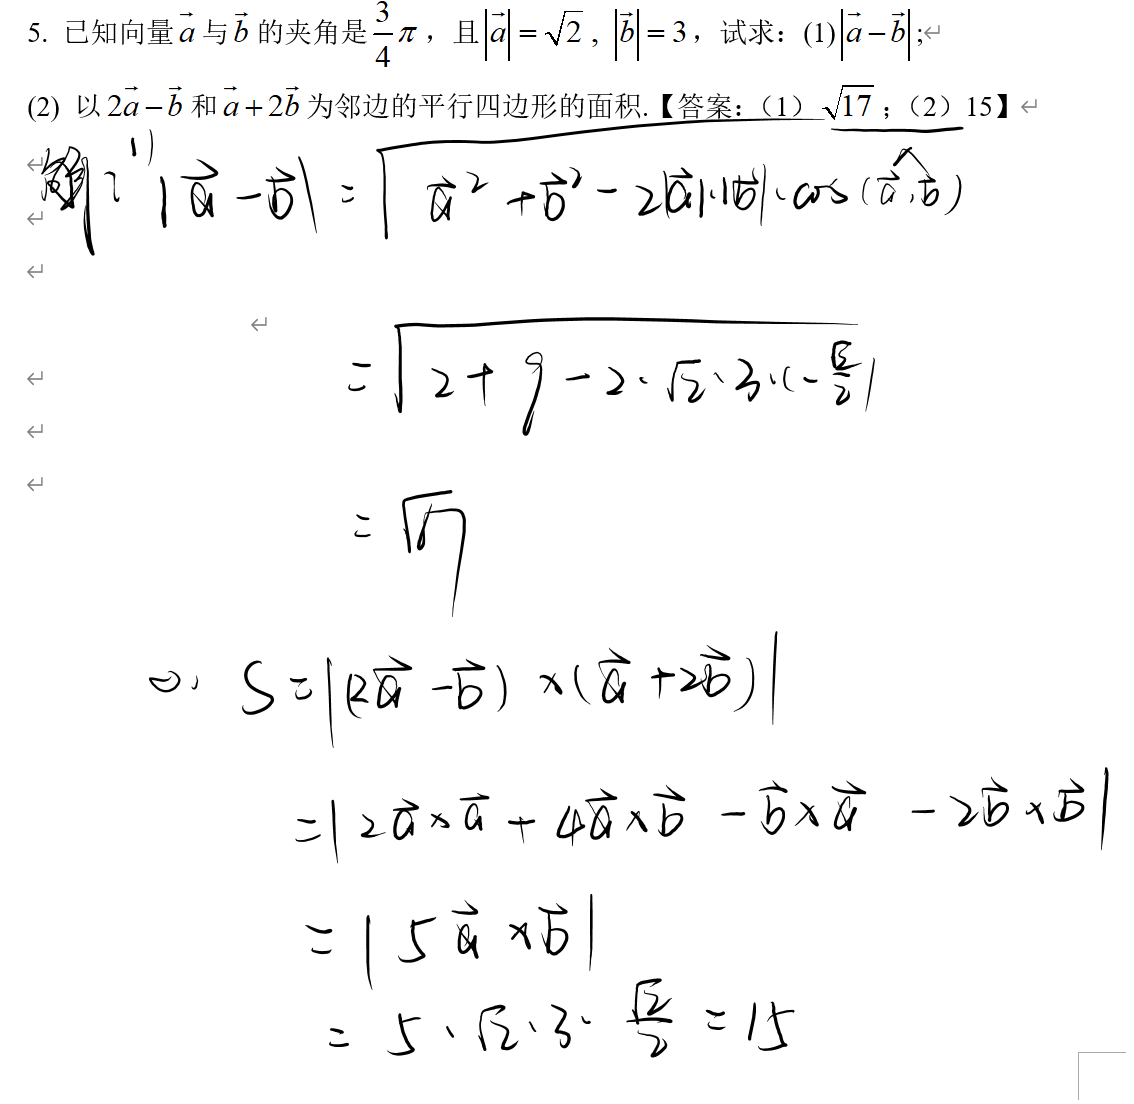 5. 已知向量 a⃗ 与 b⃗ 的夹角是 3/4 π，且|a⃗| = √2, |b⃗| = 3，试求：(1)|a⃗ − b⃗|;
(2) 以 2a⃗ − b⃗ 和 a⃗ + 2b⃗ 为邻边的平行四边形的面积.【答案：（1）√17；（2）15】
解： 1) |a⃗ − b⃗| = √(a⃗² + b⃗² − 2|a⃗|·|b⃗|·cos(a⃗,b⃗))
= √(2 + 9 − 2·√2·3·(−√2/2))
= √17
(2). S = |(2a⃗ − b⃗) × (a⃗ + 2b⃗)|
= |2a⃗ × a⃗ + 4a⃗ × b⃗ − b⃗ × a⃗ − 2b⃗ × b⃗|
= |5a⃗ × b⃗|
= 5·√2·3·√2/2 = 15